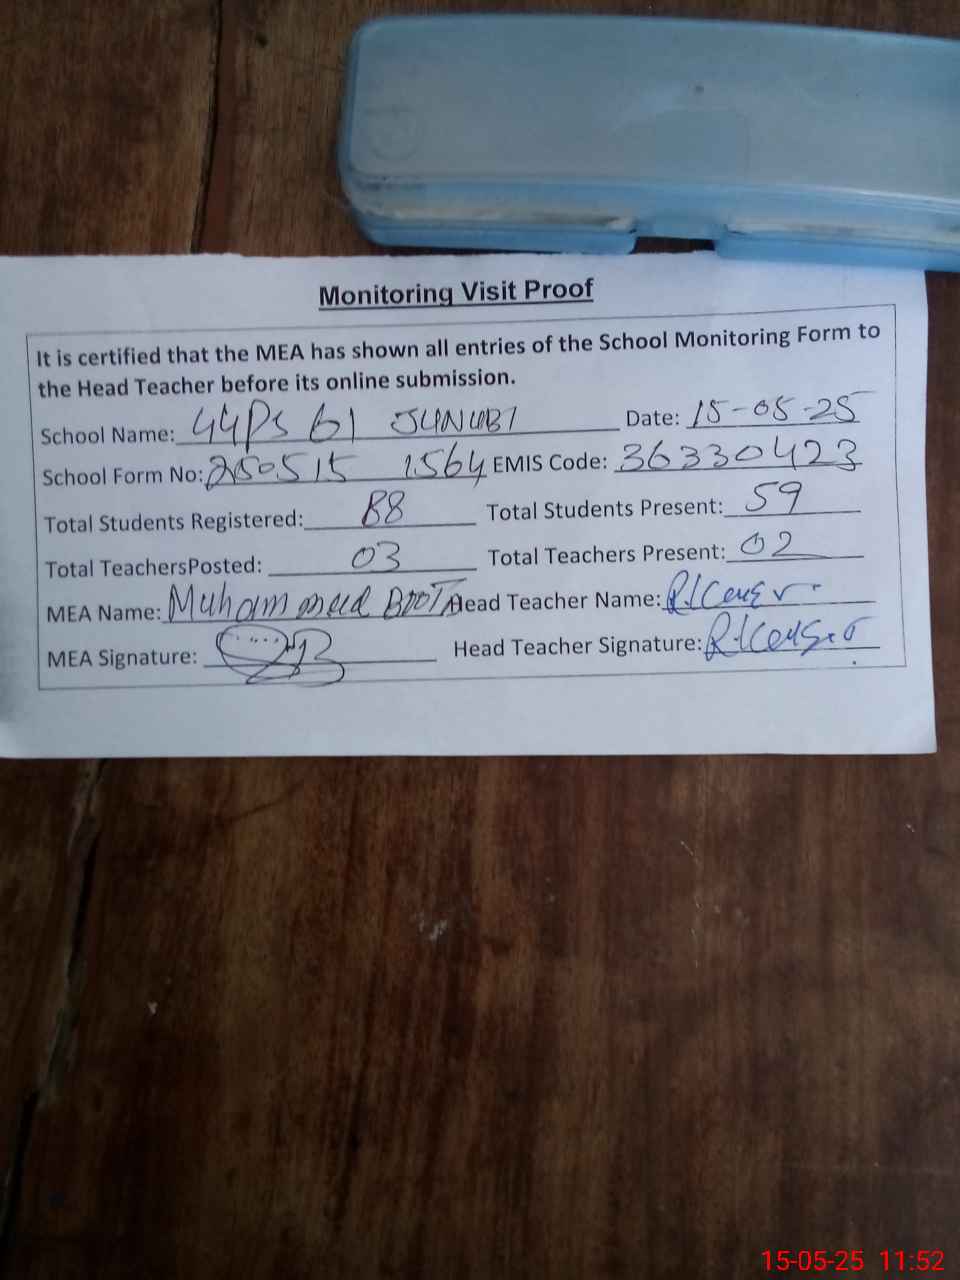 Monitoring Visit Proof
It is certified that the MEA has shown all entries of the School Monitoring Form to
the Head Teacher before its online submission.
School Name: GGPS 61 JUNUBI Date: 15-05-25
School Form No: 250515 1564 EMIS Code: 36330423
Total Students Registered: 88 Total Students Present: 59
Total TeachersPosted: 03 Total Teachers Present: 02
MEA Name: Muhammad BOOTA Head Teacher Name:
MEA Signature: Head Teacher Signature:
15-05-25 11:52